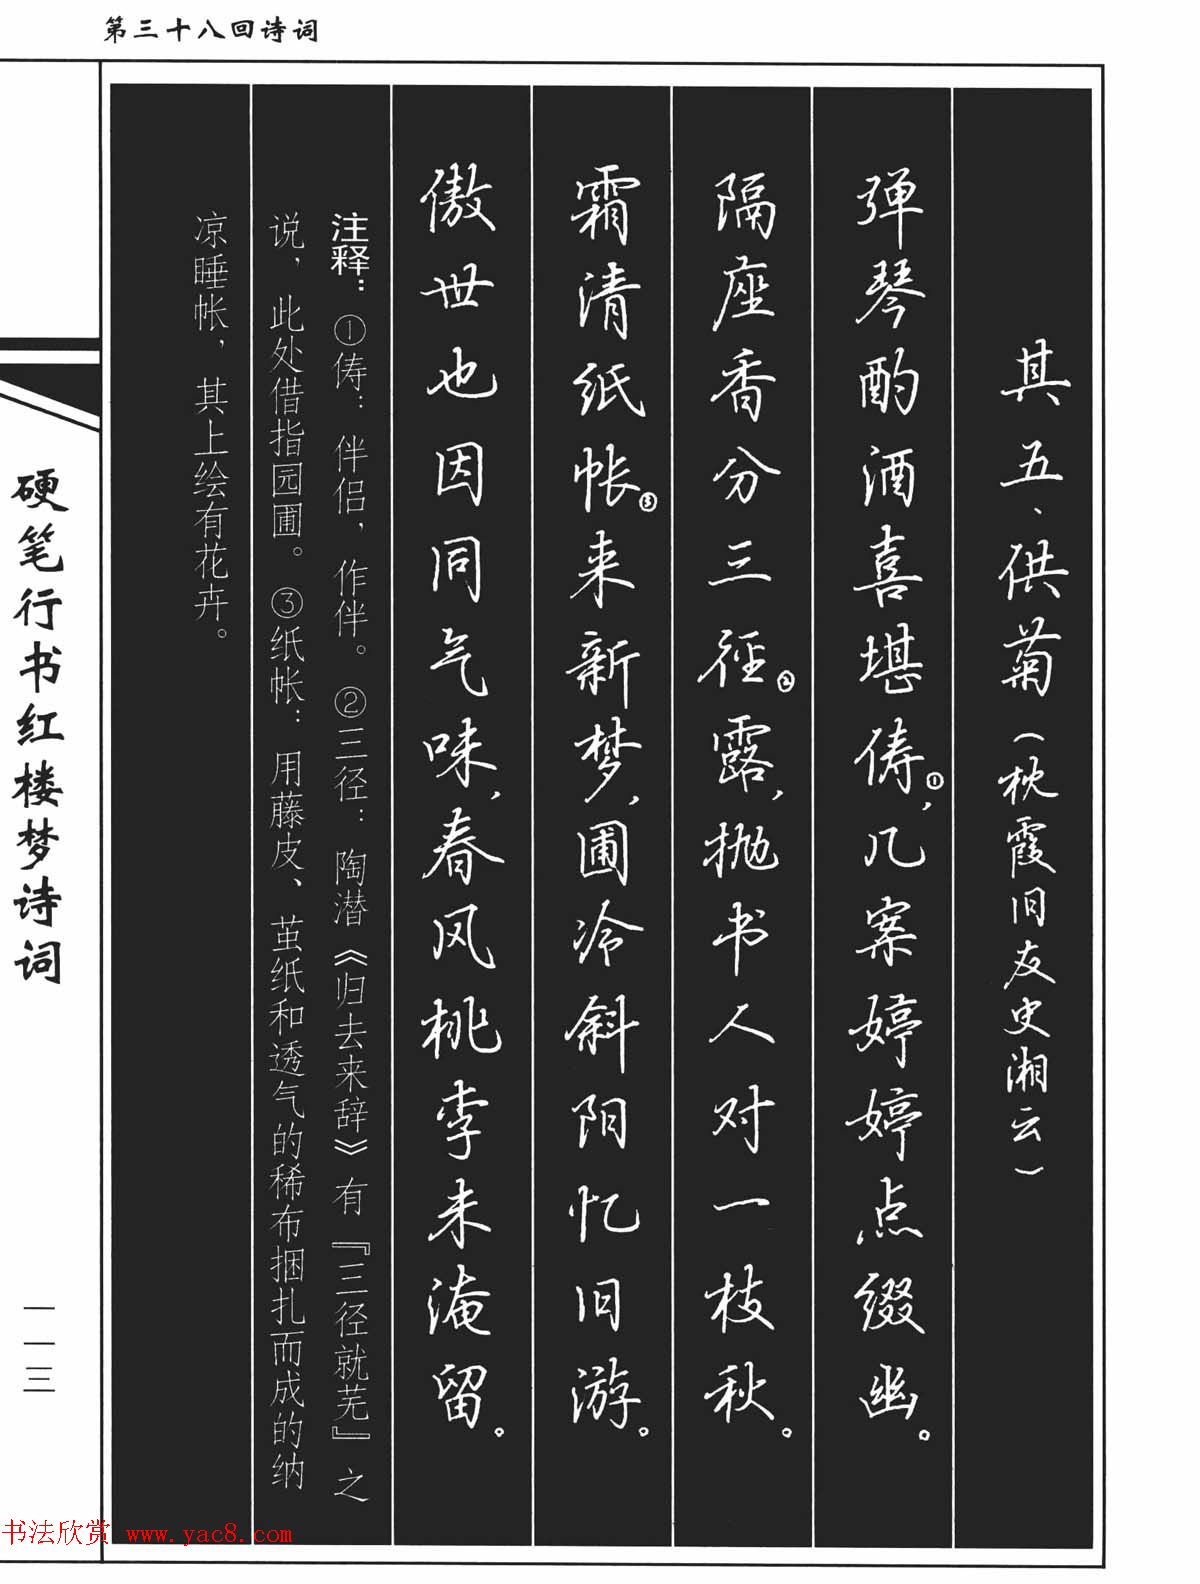 第三十八回诗词
其五、供菊（枕霞旧友史湘云）
弹琴酌酒喜堪俦①，几案婷婷点缀幽。
隔座香分三径②露，抛书人对一枝秋。
霜清纸帐③来新梦，圃冷斜阳忆旧游。
傲世也因同气味，春风桃李未淹留。
注释：①俦：伴侣，作伴。②三径：陶潜《归去来辞》有『三径就芜』之
说，此处借指园圃。③纸帐：用藤皮、茧纸和透气的稀布捆扎而成的纳
凉睡帐，其上绘有花卉。
硬笔行书红楼梦诗词
一一三
书法欣赏 www.yac8.com